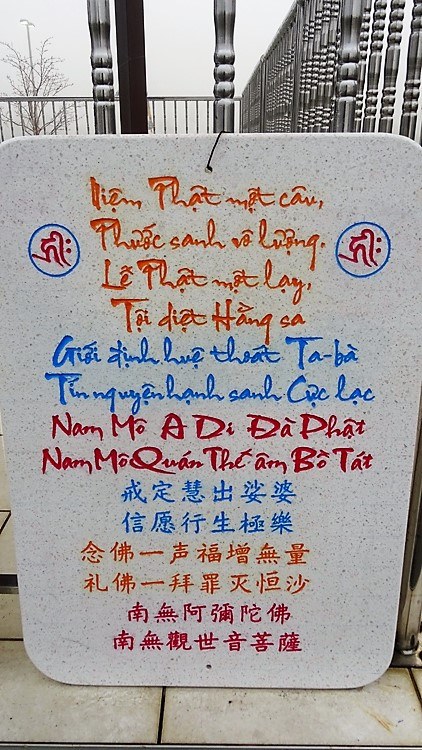 Niệm Phật một câu,
Phước sanh vô lượng.
Lễ Phật một lạy,
Tội diệt Hằng sa
Giới định huệ thoát Ta-bà
Tín nguyện hạnh sanh Cực lạc
Nam Mô A Di Đà Phật
Nam Mô Quán Thế âm Bồ Tát
戒定慧出娑婆
信愿行生極樂
念佛一声福增無量
礼佛一拜罪灭恒沙
南無阿彌陀佛
南無觀世音菩薩